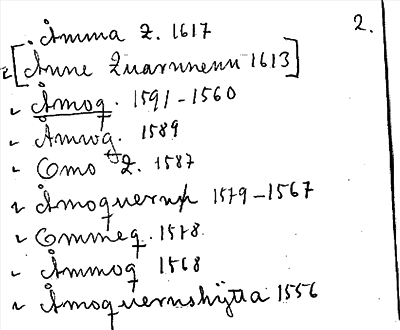 Åmma Z. 1617 2.
[Ånne Quarnnenn 1613]
Åmoq. 1591-1560
Åmwg. 1589
Omo Q. 1587
Åmoquernp 1579-1567
Ommeq. 1578.
Åmmoq 1568
Åmoquernshytta 1556